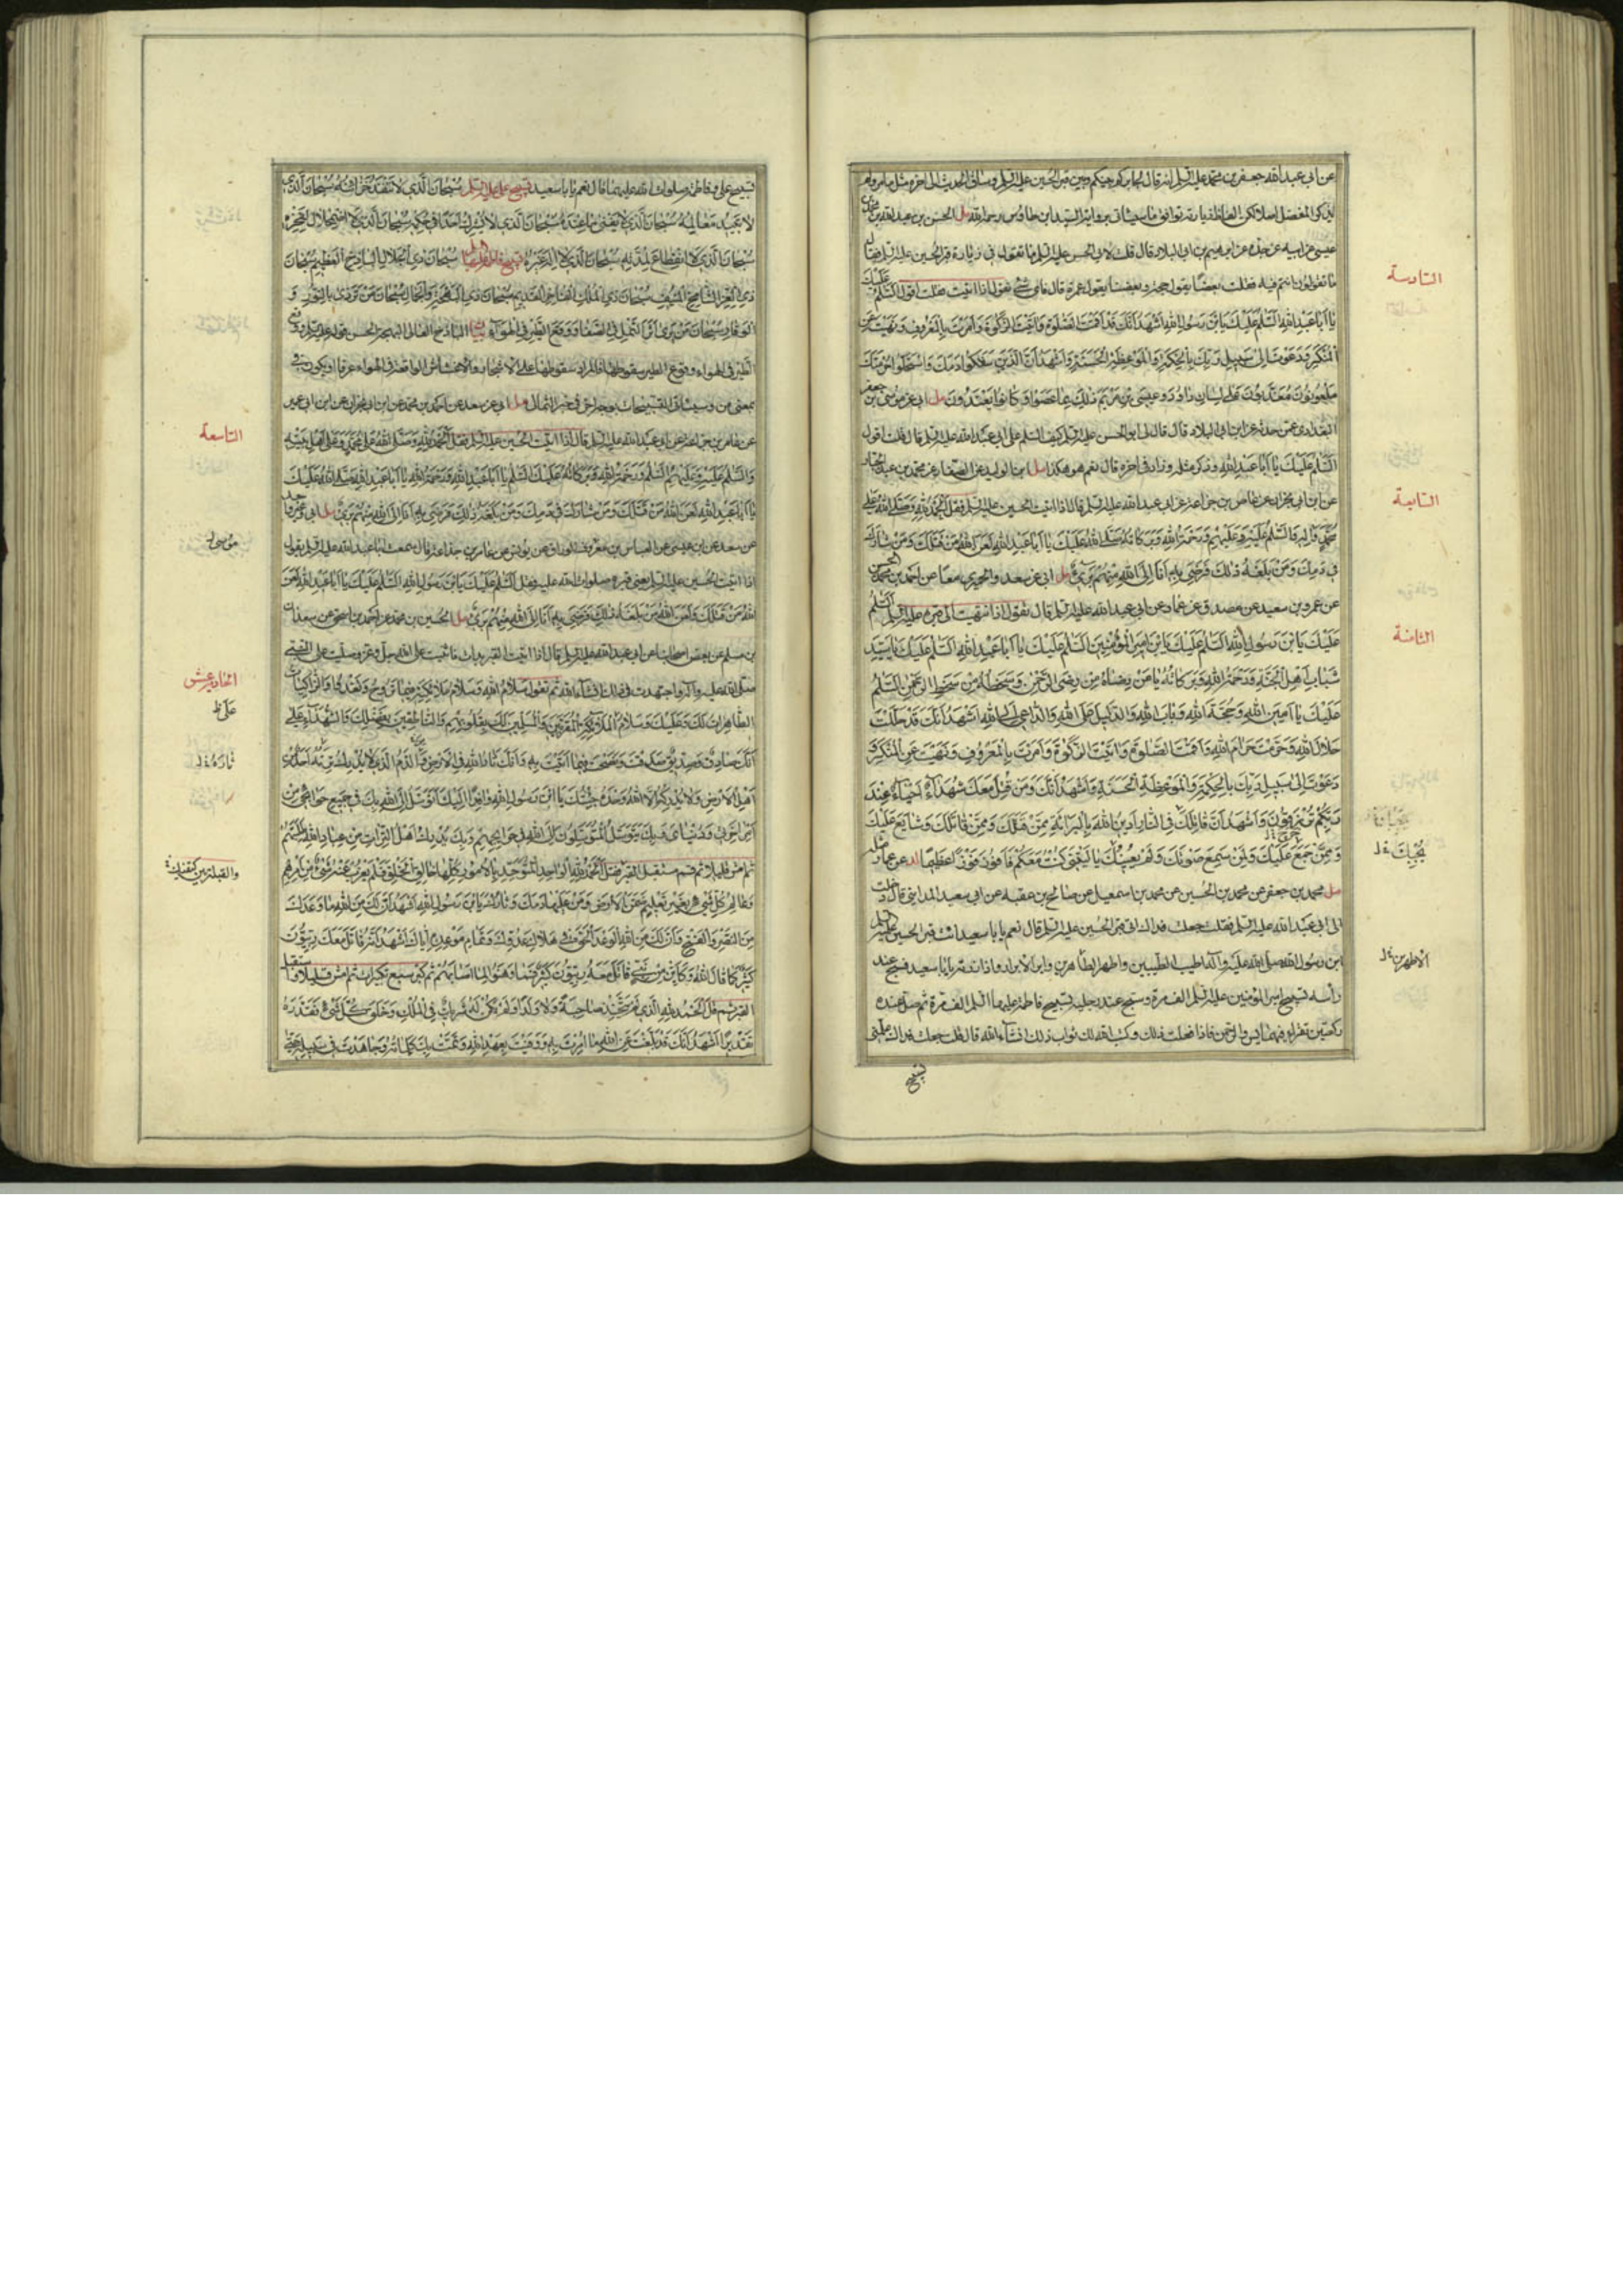 عن ابي عبد الله جعفر بن محمد عليه السلم انه قال لجابر كم بينكم وبين قبر الحسين عليه السلم وساق الحديث الى اخره مثل ما مر ولم
يذكر المفضل اصلا لكن الفاظ الزيارة توافق ما سيأتي برواية السيد ابن طاوس رحمه الله مل الحسن بن عبد الله بن محمد بن
عيسى عن ابيه عن جده عن ابرهيم بن ابي البلاد قال قلت لابي الحسن عليه السلم ما تقول في زيارة قبر الحسين عليه السلم فقال
ما تقولون انتم فيه فقلت بعضنا يقول حجة وبعضنا يقول عمرة قال فاي شئ تقول اذا اتيت فقلت اقول السلم عليك
يا ابا عبد الله السلم عليك يا ابن رسول الله اشهد انك قد اقمت الصلوة واتيت الزكوة وامرت بالمعروف ونهيت عن
المنكر ودعوت الى سبيل ربك بالحكمة والموعظة الحسنة واشهد ان الذين سفكوا دمك واستحلوا حرمتك
ملعونون معذبون على لسان داود وعيسى بن مريم ذلك بما عصوا وكانوا يعتدون مل ابي عن موسى بن جعفر
البغدادي عمن حدثه عن ابن ابي البلاد قال قال لي ابو الحسن عليه السلم كيف السلم على ابي عبد الله عليه السلم قال قلت اقول
السلم عليك يا ابا عبد الله وذكر مثله وزاد في اخره قال نعم هو هكذا مل ابن الوليد عن الصفار عن محمد بن عبد الجبار
عن ابن ابي نجران عن عامر بن جذاعة عن ابي عبد الله عليه السلم قال اذا اتيت الحسين عليه السلم فقل الحمد لله وصلى الله على
محمد واله والسلم عليه وعليهم ورحمة الله وبركاته صلى الله عليك يا ابا عبد الله لعن الله من قتلك ومن شارك
في دمك ومن بلغه ذلك فرضي به انا الى الله منهم برئ مل ابي عن سعد والحميري معا عن احمد بن الحسن
عن عمرو بن سعيد عن مصدق عن عمار عن ابي عبد الله عليه السلم قال تقول اذا انتهيت الى قبره عليه السلم السلم
عليك يا ابن رسول الله السلم عليك يا ابن امير المؤمنين السلم عليك يا ابا عبد الله السلم عليك يا سيد
شباب اهل الجنة ورحمة الله وبركاته يا من رضاه من رضى الرحمن وسخطه من سخط الرحمن السلم
عليك يا امين الله وحجة الله وباب الله والدليل على الله والداعي الى الله اشهد انك قد حللت
حلال الله وحرمت حرام الله واقمت الصلوة واتيت الزكوة وامرت بالمعروف ونهيت عن المنكر و
دعوت الى سبيل ربك بالحكمة والموعظة الحسنة واشهد انك ومن قتل معك شهداء احياء عند
ربكم ترزقون واشهد ان قاتلك في النار ادين الله بالبرائة ممن قتلك وممن قاتلك وشايع عليك
وممن جمع عليك وممن سمع صوتك ولم يعنك يا ليتني كنت معكم فافوز فوزا عظيما عن عمار مثله
مل محمد بن جعفر عن محمد بن الحسين عن محمد بن اسمعيل عن صالح بن عقبة عن ابي سعيد المدايني قال دخلت
الى ابي عبد الله عليه السلم فقلت جعلت فداك اتي قبر الحسين عليه السلم قال نعم يا با سعيد ائت قبر الحسين عليه السلم
ابن رسول الله صلى الله عليه وآله اطيب الطيبين واطهر الطاهرين وابر الابرار واذا زرته يا با سعيد فسبح عند
رأسه تسبيح امير المؤمنين عليه السلم الف مرة وسبح عند رجليه تسبيح فاطمة عليها السلم الف مرة ثم صل عنده
ركعتين تقرا فيهما يس والرحمن فاذا فعلت ذلك كتب الله لك ثواب ذلك انشاء الله قال قلت جعلت فداك علمني
تسبيح
السادسة
السابعة
الثامنة
الاطهرين
تسبيح علي وفاطمة صلوات الله عليهما قال نعم يا با سعيد تسبيح علي عليه السلم سبحان الذي لا تنفد خزائنه سبحان الذي
لا تبيد معالمه سبحان الذي لا يفنى ما عنده سبحان الذي لا يشرك احدا في حكمه سبحان الذي لا اضمحلال لفخره
سبحان الذي لا انقطاع لمدته سبحان الذي لا اله غيره تسبيح فاطمة عليها السلم سبحان ذي الجلال الباذخ العظيم سبحان
ذي العز الشامخ المنيف سبحان ذي الملك الفاخر القديم سبحان ذي البهجة والجمال سبحان من تردى بالنور و
الوقار سبحان من يرى اثر النمل في الصفا ووقع الطير في الهواء بيان الباذخ العالي البهجة الحسن قوله عليه السلم ووقع
الطير في الهواء وقوع الطير سقوطها فالمراد سقوطها على الاشجار والاعشاش الواقعة في الهواء عرفا او يكون في
بمعنى من وسيأتي التسبيحات بوجه اخر في خبر الثمالي مل ابي عن سعد عن احمد بن محمد عن ابن ابي نجران عن ابن ابي عمير
عن عامر بن جذاعة عن ابي عبد الله عليه السلم قال اذا اتيت الحسين عليه السلم فقل الحمد لله وصلى الله على محمد وعلى اهل بيته
والسلم عليه وعليهم السلم ورحمة الله وبركاته عليك السلم يا ابا عبد الله ورحمة الله يا ابا عبد الله صلى الله عليك
يا ابا عبد الله لعن الله من قتلك ومن شارك في دمك ومن بلغه ذلك فرضي به انا الى الله منهم برئ مل ابي
عن سعد عن ابن عيسى عن العباس بن معروف عن يونس عن عامر بن جذاعة قال سمعت ابا عبد الله عليه السلم يقول
اذا اتيت الحسين عليه السلم يعني قبره صلوات الله عليه فقل السلم عليك يا ابن رسول الله السلم عليك يا ابا عبد الله لعن
الله من قتلك ولعن الله من بلغه ذلك فرضي به انا الى الله منهم برئ مل الحسين بن محمد عن احمد بن اسحق عن سعدان
بن مسلم عن بعض اصحابنا عن ابي عبد الله عليه السلم قال اذا اتيت القبر بدات فاثنيت على الله جل وعز وصليت على النبي
صلى الله عليه وآله واجتهدت في ذلك انشاء الله ثم تقول سلام الله وسلام ملائكته فيما تروح وتغدو والزاكيات
الطاهرات لك وعليك وسلام الملائكة المقربين والمسلمين لك بقلوبهم والناطقين بفضلك والشهداء على
انك صادق وصديق صدقت ونصحت فيما اتيت به وانك ثار الله في الارض والدم الذي لا يدرك ترته احد من
اهل الارض ولا يدركه الا الله وحده جئتك يا ابن رسول الله وافدا اليك اتوسل الى الله بك في جميع حوائجي من
امر اخرتي ودنياي وبك يتوسل المتوسلون الى الله في حوائجهم وبك يدرك اهل الترات من عباد الله طلبتهم
ثم امش قليلا ثم قم مستقبل القبر فقل الحمد لله الواحد المتوحد بالامور كلها خالق الخلق فلم يعزب عنه شئ من امرهم
وعالم كل شئ بغير تعليم ضمن الارض ومن عليها دمك وثارك يا ابن رسول الله اشهد ان لك من الله ما وعدك
من النصر والفتح وان لك من الله الوعد الحق في هلاك عدوك وتمام موعده اياك اشهد انه قاتل معك ربيون
كثير كما قال الله وكاين من نبي قاتل معه ربيون كثير فما وهنوا لما اصابهم ثم كبر سبع تكبيرات ثم امش قليلا واستقبل
القبر ثم قل الحمد لله الذي لم يتخذ صاحبة ولا ولدا ولم يكن له شريك في الملك وخلق كل شئ فقدره
تقديرا اشهد انك قد بلغت عن الله ما امرت به ووفيت بعهد الله وتمت بك كلماته وجاهدت في سبيله حتى
التاسعة
الحادية عشر